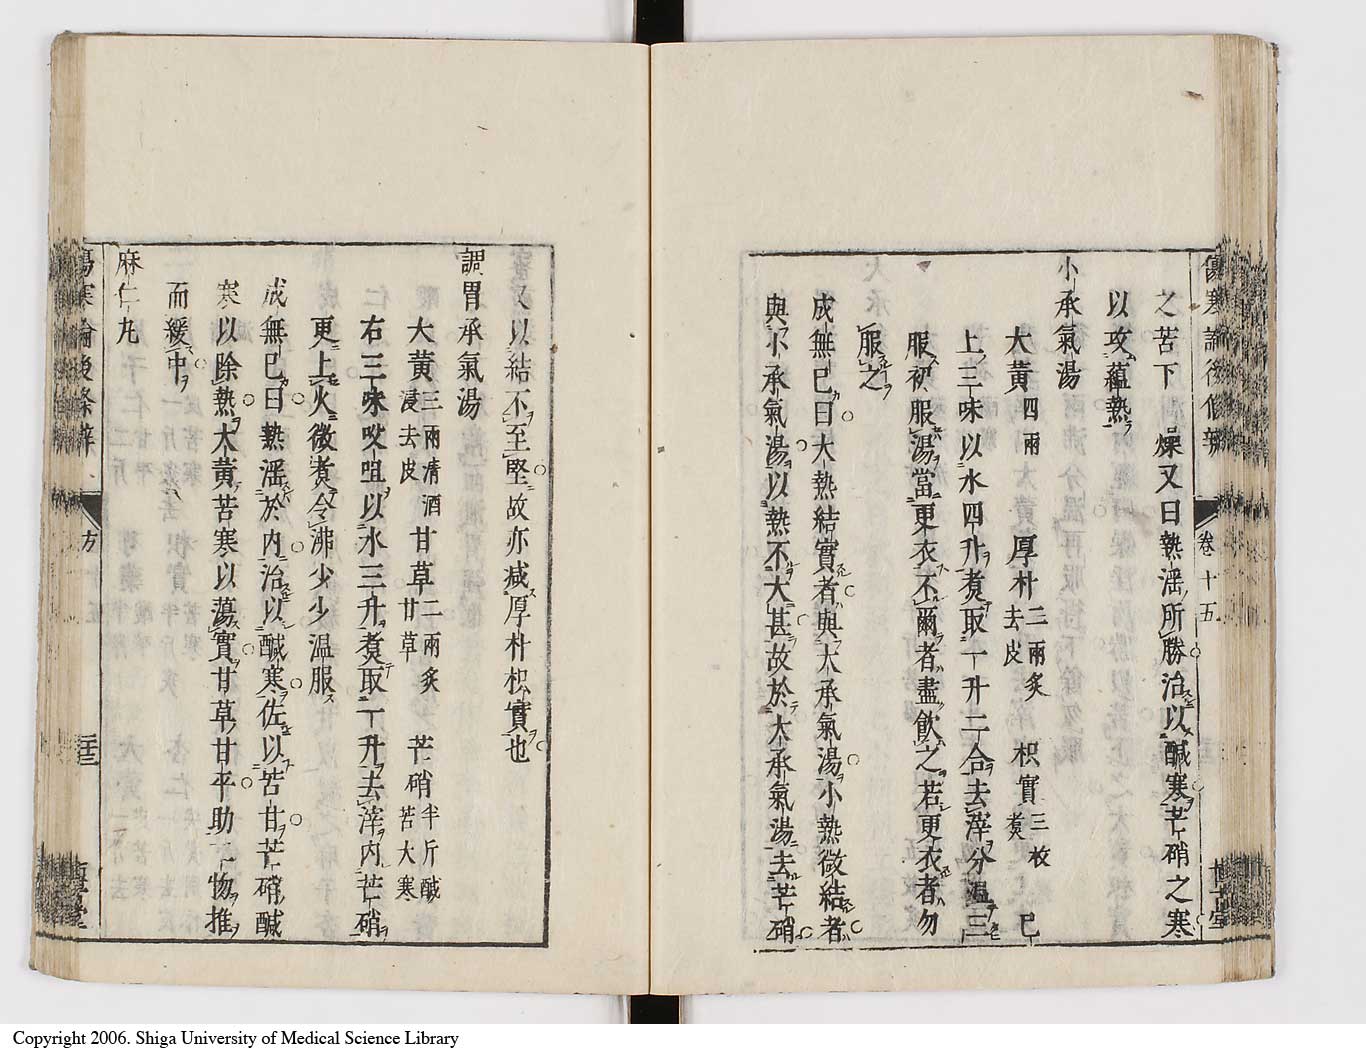 傷寒論後條辨 卷十五 博古堂
之苦下燥又曰熱滛所勝治以鹹寒芒硝之寒
以攻蘊熱
小承氣湯
大黃四兩 厚朴二兩炙去皮 枳實三枚煑 已
上三味以水四升煑取一升二合去滓分温三
服初服湯當更衣不爾者盡飲之若更衣者勿
服之
成無已曰大熱結實者與大承氣湯小熱微結者
與小承氣湯以熱不大甚故於大承氣湯去芒硝
又以結不至堅故亦减厚朴枳實也
調胃承氣湯
大黃三兩清酒浸去皮 甘草二兩炙甘草 芒硝半斤鹹苦大寒
右三味㕮咀以水三升煑取一升去滓内芒硝
更上火微煑令沸少少温服
成無已曰熱滛於内治以鹹寒佐以苦甘芒硝鹹
寒以除熱大黃苦寒以蕩實甘草甘平助二物推
而緩中
麻仁丸
傷寒論後條辨 方 二十三